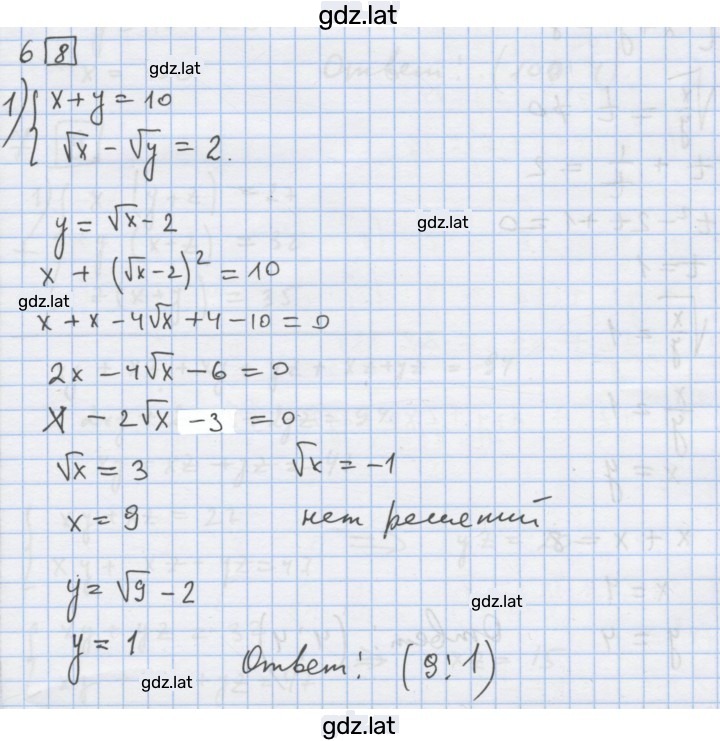 gdz.lat
6 8
gdz.lat
1) { x + y = 10
√x − √y = 2.
y = √x − 2
gdz.lat
x + (√x − 2)² = 10
gdz.lat
x + x − 4√x + 4 − 10 = 0
2x − 4√x − 6 = 0
x − 2√x − 3 = 0
√x = 3 √x = −1
x = 9 нет решений
y = √9 − 2
gdz.lat
y = 1
Ответ: (9; 1)
gdz.lat
gdz.lat